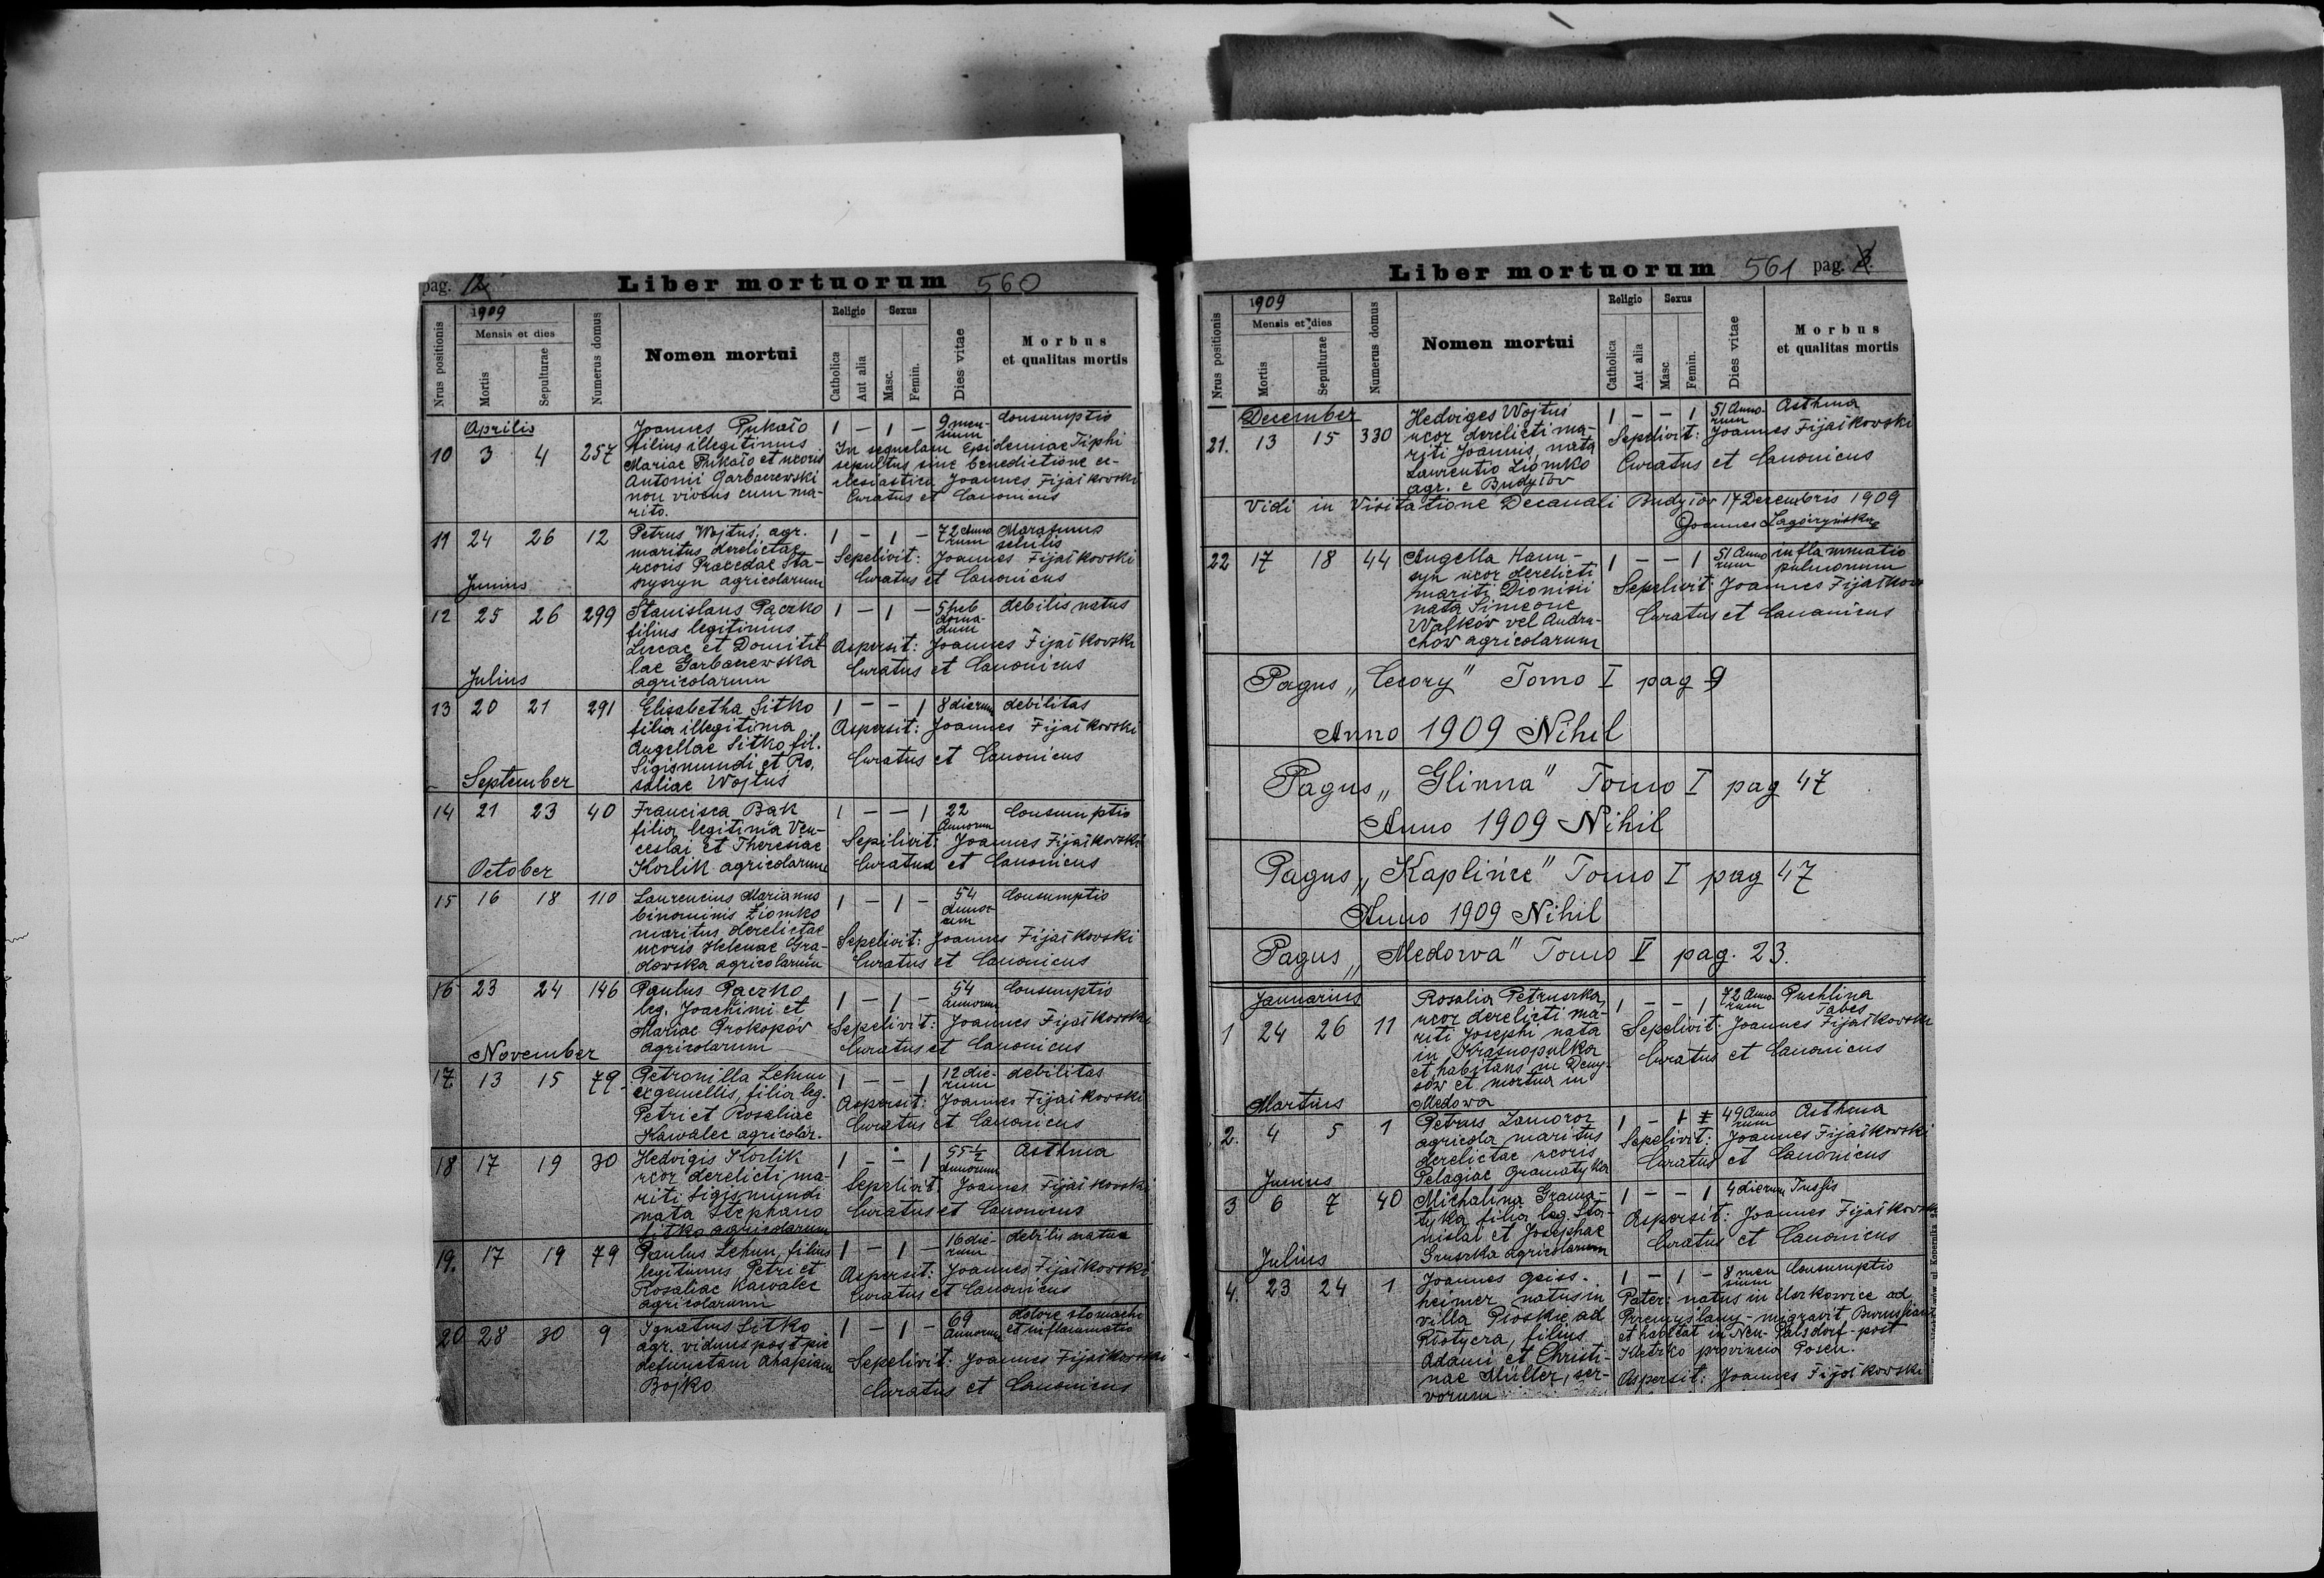 pag. 12
Liber mortuorum 560
1909
Mensis et dies
Nrus positionis
Mortis
Sepulturae
Numerus domus
Nomen mortui
Religio
Catholica
Aut alia
Sexus
Masc.
Femin.
Dies vitae
Morbus
et qualitas mortis
Aprilis
10 3 4 257
Joannes Pukało
filius illegitimus
Mariae Pukało et uxoris
Antonii Garbaczewski
non vivens cum ma-
rito.
1 - 1 - 9 men-
sium
Consumptio
In sequelam Epidemiae Tiphi
sepultus sine benedictione ec-
clesiastica Joannes Fijałkowski
Curatus et Canonicus
11 24 26 12
Petrus Wojtuś, agr.
maritus derelictae
uxoris Praxedae Sta-
agricolarum
1 - 1 - 72 Anno
rum
Marasmus
senilis
Sepelivit: Joannes Fijałkowski
Curatus et Canonicus
Junius
12 25 26 299
Stanislaus Pączko
filius legitimus
Lucae et Domitil
lae Garbaczewska
agricolarum
1 - 1 - 5 heb
doma-
dum
debilis natus
Aspersit: Joannes Fijałkowski
Curatus et Canonicus
Julius
13 20 21 291
Elisabetha Sitko
filia illegitima
Angellae Sitko fil.
Sigismundi et Ro-
saliae Wojtuś
1 - - 1 8 dierum debilitas
Aspersit: Joannes Fijałkowski
Curatus et Canonicus
September
14 21 23 40
Francisca Bąk
filia legitima Ven-
ceslai et Theresiae
Korlik agricolarum
1 - - 1 22
Annorum
Consumptio
Sepilivit: Joannes Fijałkowski
Curatus et Canonicus
October
15 16 18 110
Laurencius Marianus
binominis Ziomko
maritus derelictae
uxoris Helenae Gra-
dowska agricolarum
1 - 1 - 54
Annor-
um
Consumptio
Sepelivit: Joannes Fijałkowski
Curatus et Canonicus
16 23 24 146
Paulus Pączko
leg. Joachimi et
Mariae Prokopów
agricolarum
1 - 1 - 54
Annorum
Consumptio
Sepelivit: Joannes Fijałkowski
Curatus et Canonicus
November
17 13 15 79
Petronilla Lehun
ex gemellis, filia leg.
Petri et Rosaliae
Kawalec agricolar.
1 - - 1 12 die-
rum
debilitas
Aspersit: Joannes Fijałkowski
Curatus et Canonicus
18 17 19 30
Hedvigis Korlik
uxor derelicti ma-
riti Sigismundi
nata Stephano
Sitko agricolarum
1 - - 1 55 1/2
Annorum
Asthma
Sepelivit Joannes Fijałkowski
Curatus et Canonicus
19. 17 19 79
Paulus Lehun, filius
legitimus Petri et
Rosaliae Kawalec
agricolarum
1 - 1 - 16 die-
rum
debilis natus
Aspersit: Joannes Fijałkowski
Curatus et Canonicus
20 28 30 9
Ignatius Sitko
agr. viduus post pie
defunctam Ahapiam
Bojko
1 - 1 - 69
Annorum
dolore stomachi
et inflammatio
Sepelivit: Joannes Fijałkowski
Curatus et Canonicus
Liber mortuorum 561 pag. 3
1909
Mensis et dies
Nrus positionis
Mortis
Sepulturae
Numerus domus
Nomen mortui
Religio
Catholica
Aut alia
Sexus
Masc
Femin.
Dies vitae
Morbus
et qualitas mortis
December
21. 13 15 330
Hedviges Wojtuś
uxor derelicti ma-
riti Joannis, nata
Laurentio Ziomko
agr. e Budyłów
1 - - 1 51 Anno-
rum
Asthma
Sepelivit: Joannes Fijałkowski
Curatus et Canonicus
Vidi in Visitatione Decanali Budyłów 17 Decembris 1909
Joannes Zagórzyński
22 17 18 44
Angella Hann-
syn uxor derelicti
mariti Dionisii
nata Simeone
Walków vel Andru-
chów agricolarum
1 - - 1 51 Anno
rum
inflammatio
pulmonum
Sepelivit: Joannes Fijałkow
Curatus et Canonicus
Pagus „Cecory" Tomo I pag 9
Anno 1909 Nihil
Pagus „Glinna" Tomo I pag 47
Anno 1909 Nihil
Pagus „Kaplińce" Tomo I pag 47
Anno 1909 Nihil
Pagus „Medowa" Tomo V pag. 23.
Januarius
1 24 26 11
Rosalia Petruszka,
uxor derelicti ma-
riti Josephi nata
in Krasnopulka
et habitans in Deny-
sów et mortua in
Medowa
1 - - 1 72 Anno-
rum
Puchlina
Tabes
Sepelivit: Joannes Fijałkowski
Curatus et Canonicus
Martius
2. 4 5 1
Petrus Zamoroz
agricola maritus
derelictae uxoris
Pelagiae Gramatyka
1 - 1 - 49 Anno
rum
Asthma
Sepelivit: Joannes Fijałkowski
Curatus et Canonicus
Junius
3 6 7 40
Michalina Grama-
tyka filia leg. Sta-
nislai et Josephae
Gruszka agricolarum
1 - - 1 4 dierum Tussis
Aspersit: Joannes Fijałkowsk
Curatus et Canonicus
Julius
4. 23 24 1
Joannes Geiss-
heimer natus in
villa Płoskie ad
Płotycza, filius
Adami et Christi-
nae Müller, ser-
vorum
1 - 1 - 8 men
sium
Consumptio
Pater: natus in Uszkowice ad
Przemyślany - migravit Borussiam
et habitat in Neu-Palsdorf - post
Kletzko provincia Posen.
Aspersit: Joannes Fijałkowski